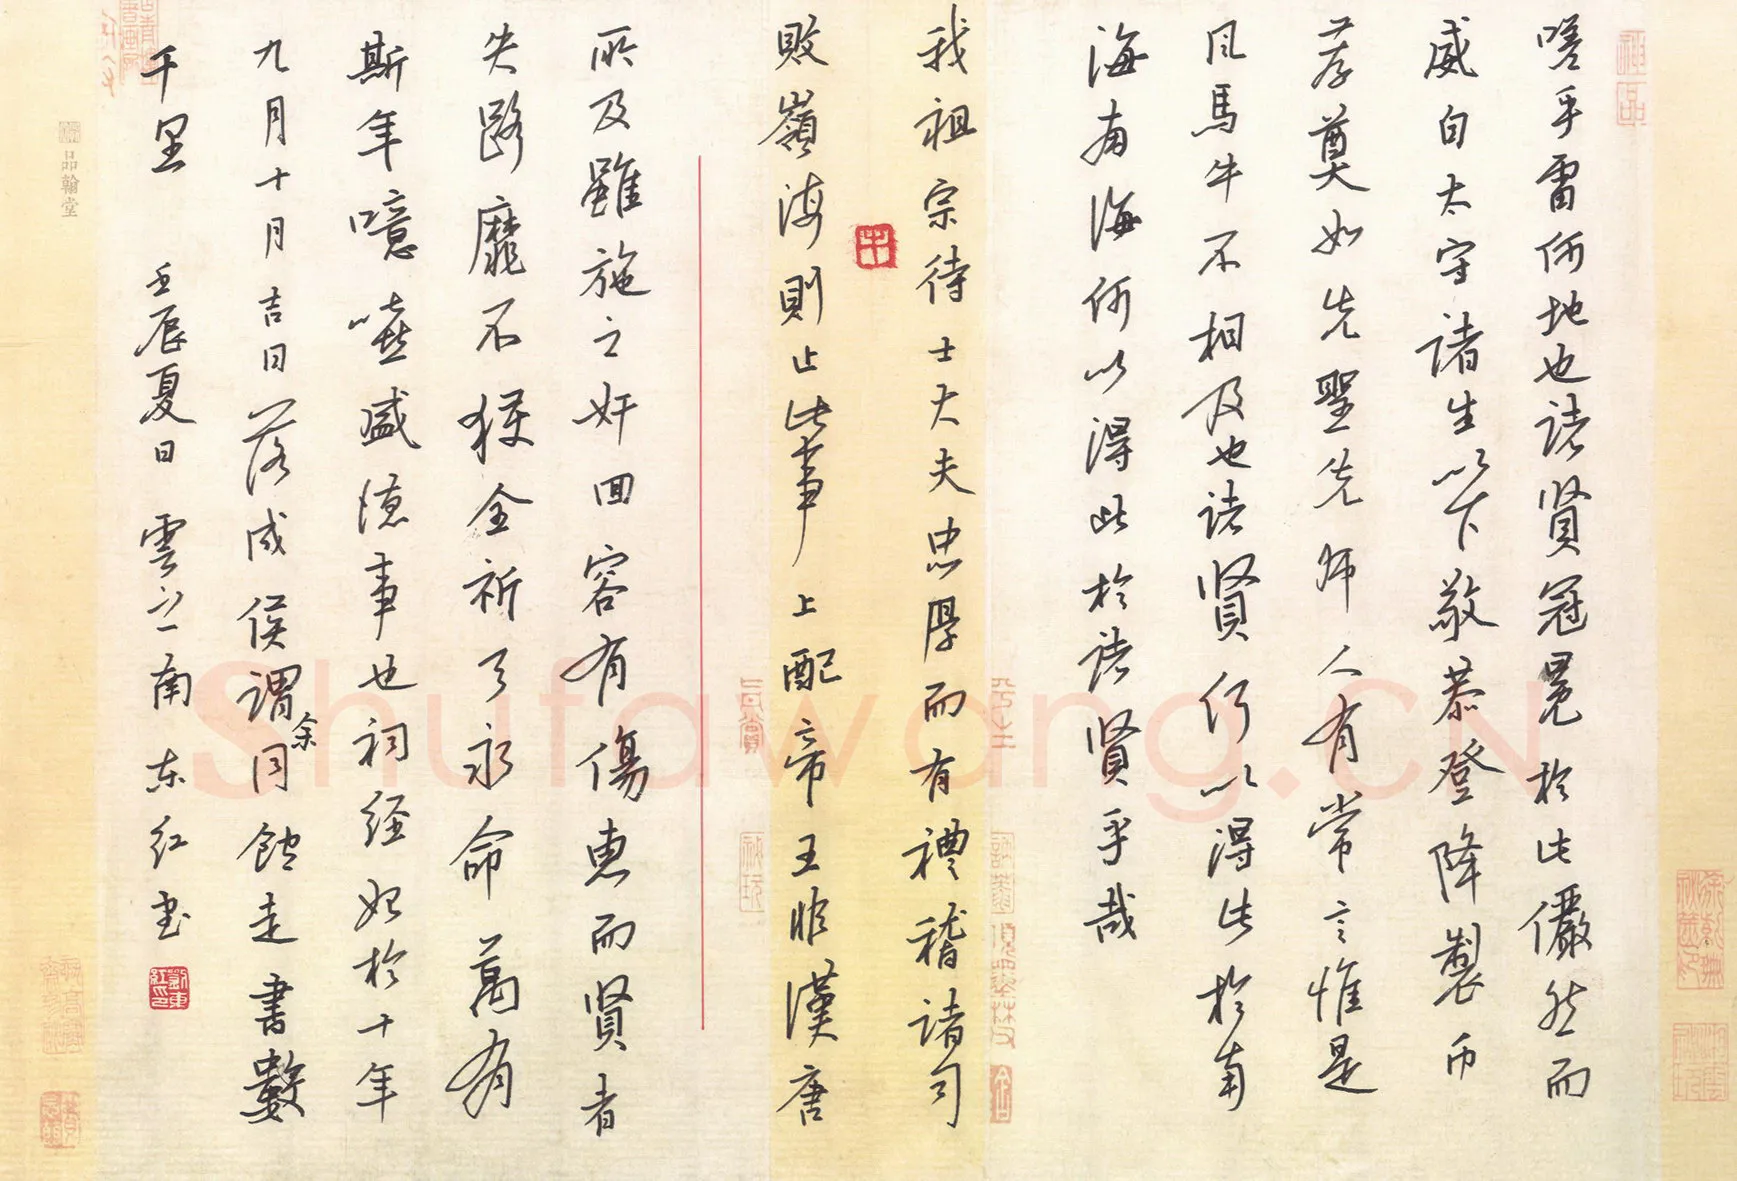 嗟乎雷何地也諸賢冠冕於此儼然而
威自太守諸生以下敬恭登降製币
荐奠如先聖先师人有常言惟是
风馬牛不相及也諸贤何以得此於南
海南海何以得此於諸贤乎哉
我祖宗待士大夫忠厚而有禮稽諸司
敗嶺海則止此事上配帝王非漢唐
所及雖施之奸回容有傷惠而贤者
失路靡不獲全祈天永命萬有
斯年噫嘻盛德事也祠经始於十年
九月十月吉日落成侯谓余同館走書數
千里 壬辰夏日 雲之南 东红书
劉東紅印
品翰堂
Shufawang.CN